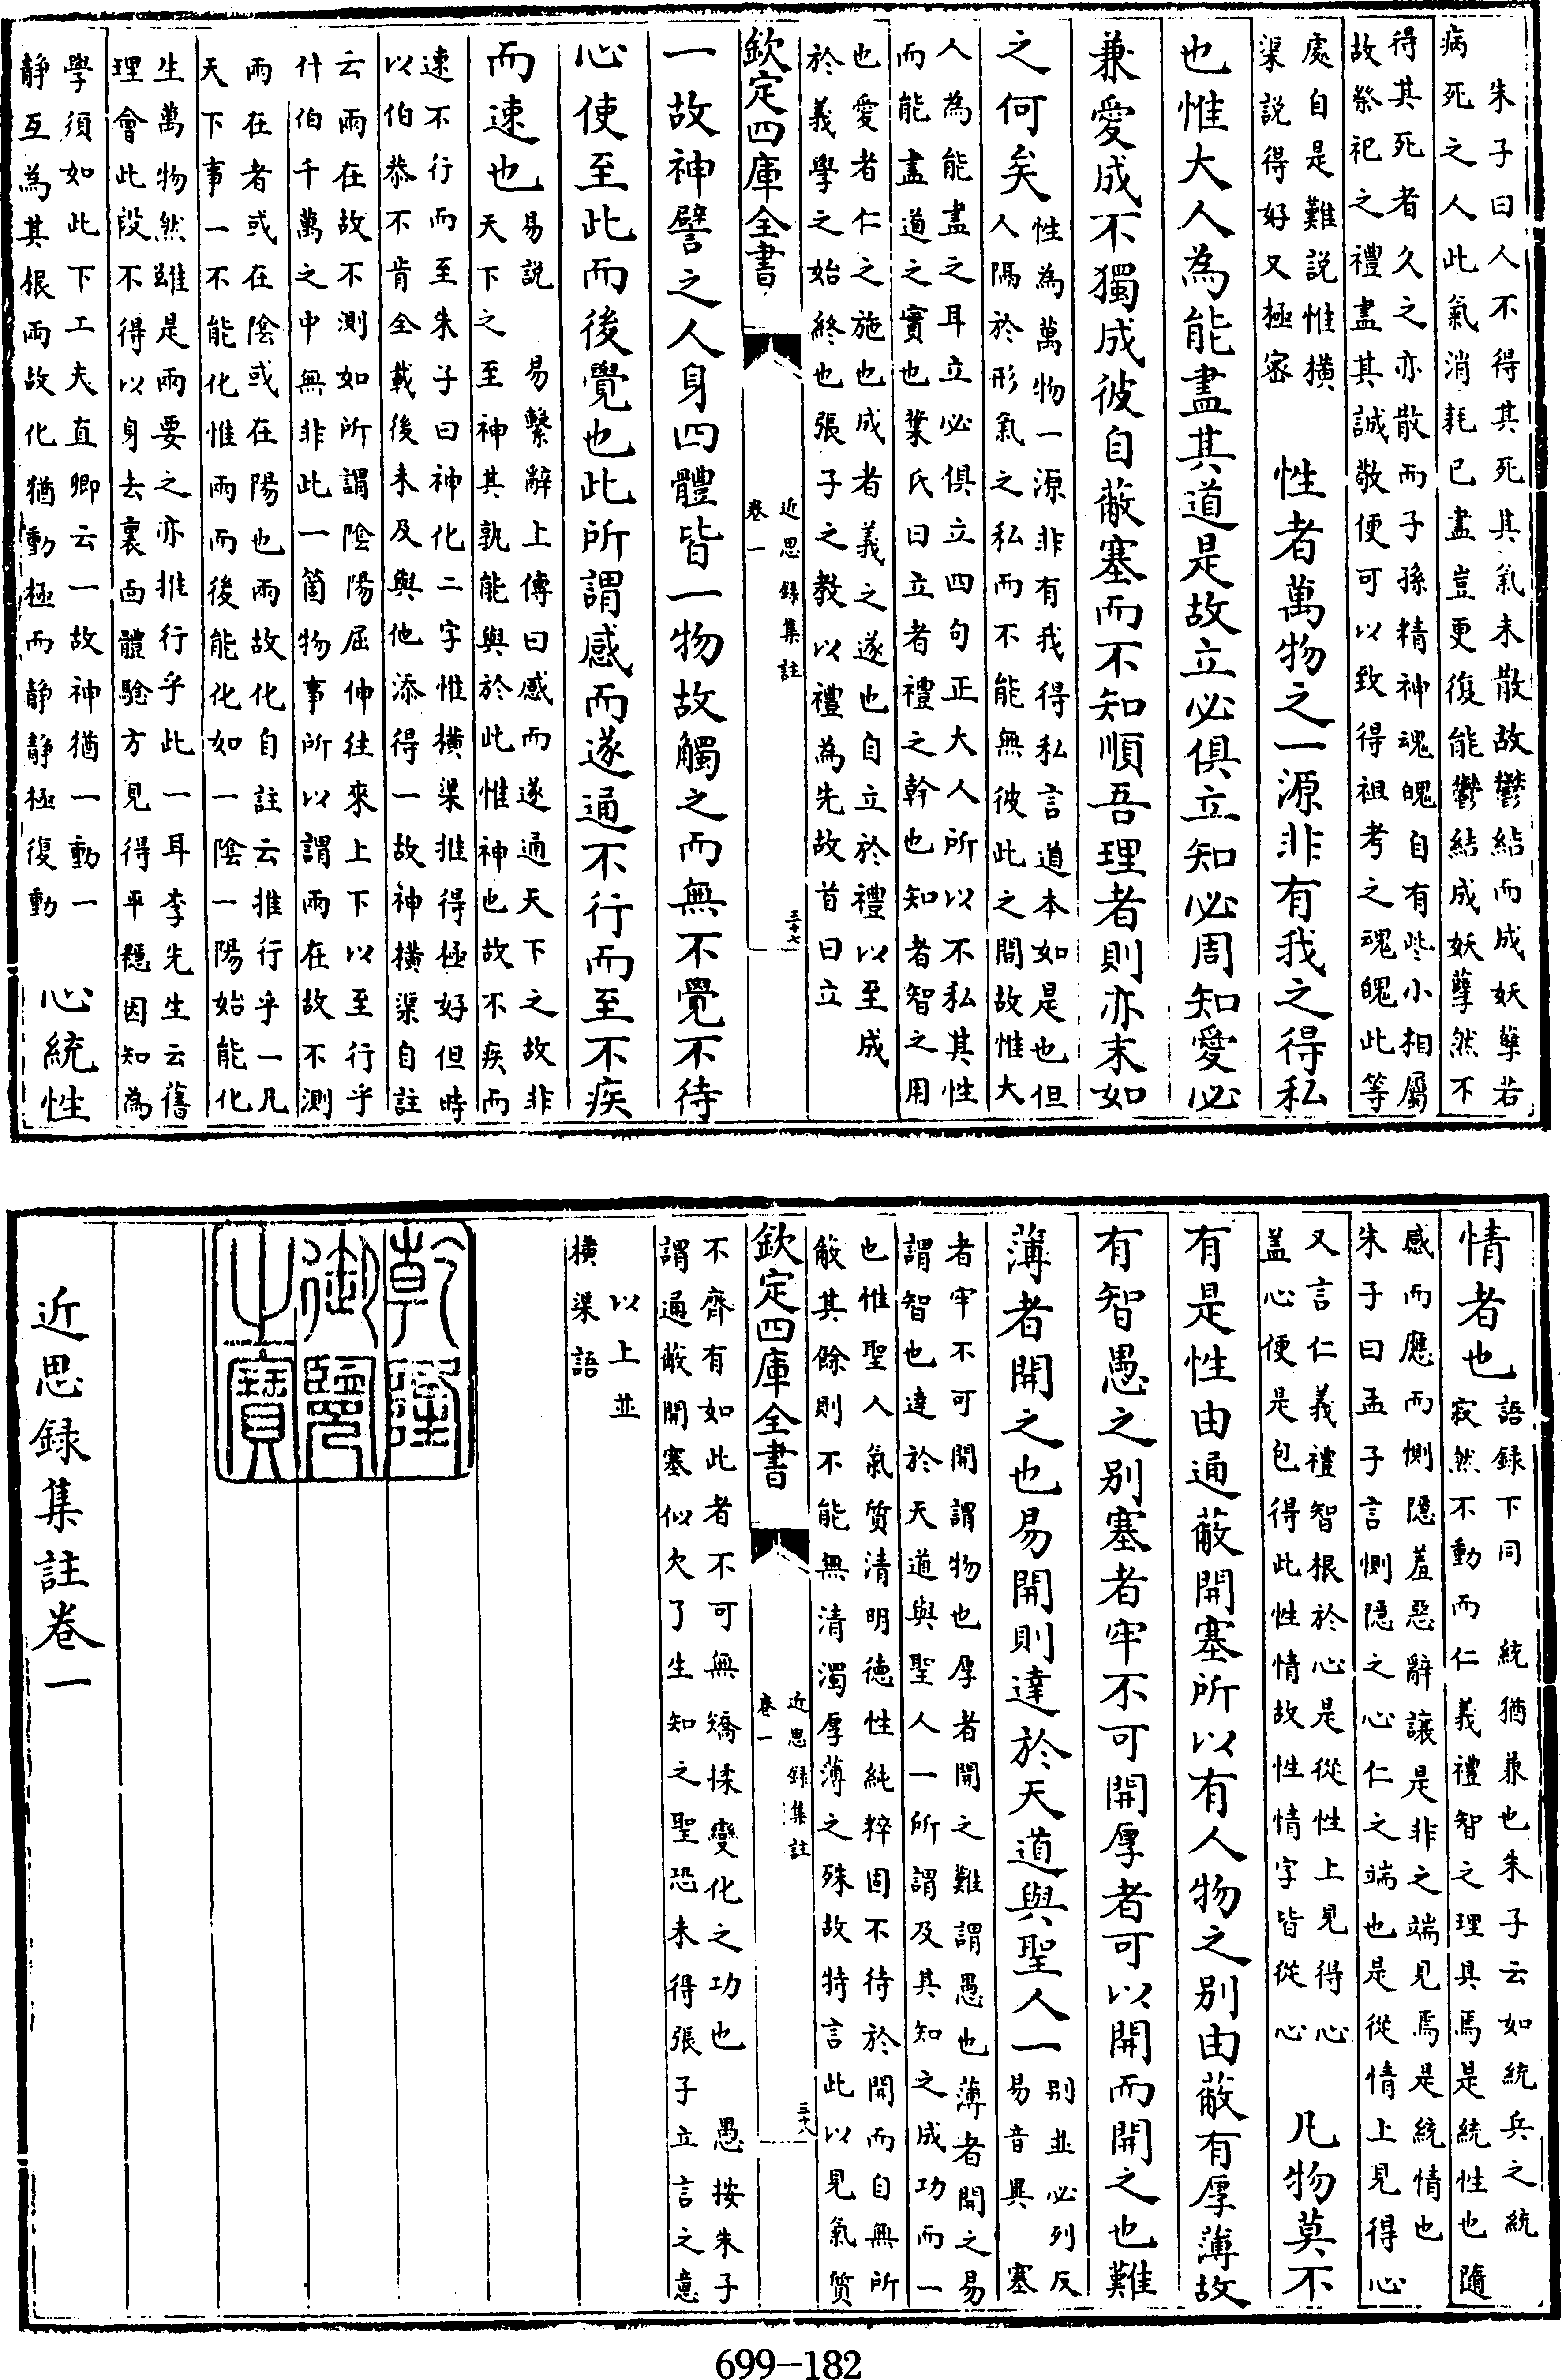 朱子曰人不得其死其氣未散故鬱結而成妖孽若
病死之人此氣消耗已盡豈更復能鬱結成妖孽然不
得其死者久之亦散而子孫精神魂魄自有些小相屬
故祭祀之禮盡其誠敬便可以致得祖考之魂魄此等
處自是難説惟橫
渠説得好又極密
性者萬物之一源非有我之得私
也惟大人為能盡其道是故立必俱立知必周知愛必
兼愛成不獨成彼自蔽塞而不知順吾理者則亦末如
之何矣
性為萬物一源非有我得私言道本如是也但
人隔於形氣之私而不能無彼此之間故惟大
人為能盡之耳立必俱立四句正大人所以不私其性
而能盡道之實也葉氏曰立者禮之幹也知者智之用
也愛者仁之施也成者義之遂也自立於禮以至成
於義學之始終也張子之教以禮為先故首曰立
欽定四庫全書
近思録集註
卷一
三十七
一故神譬之人身四體皆一物故觸之而無不覺不待
心使至此而後覺也此所謂感而遂通不行而至不疾
而速也
易説 易繫辭上傳曰感而遂通天下之故非
天下之至神其孰能與於此惟神也故不疾而
速不行而至朱子曰神化二字惟橫渠推得極好但時
以伯恭不肯全載後未及與他添得一故神橫渠自註
云兩在故不測如所謂陰陽屈伸往來上下以至行乎
什伯千萬之中無非此一箇物事所以謂兩在故不測
兩在者或在陰或在陽也兩故化自註云推行乎一凡
天下事一不能化惟兩而後能化如一陰一陽始能化
生萬物然雖是兩要之亦推行乎此一耳李先生云舊
理會此段不得以身去裏面體驗方見得平穩因知為
學須如此下工夫直卿云一故神猶一動一
靜互為其根兩故化猶動極而靜靜極復動
心統性
情者也
語録下同 統猶兼也朱子云如統兵之統
寂然不動而仁義禮智之理具焉是統性也隨
感而應而惻隱羞惡辭讓是非之端見焉是統情也
朱子曰孟子言惻隱之心仁之端也是從情上見得心
又言仁義禮智根於心是從性上見得心
盖心便是包得此性情故性情字皆從心
凡物莫不
有是性由通蔽開塞所以有人物之别由蔽有厚薄故
有智愚之别塞者牢不可開厚者可以開而開之也難
薄者開之也易開則達於天道與聖人一
别並必列反
易音異 塞
者牢不可開謂物也厚者開之難謂愚也薄者開之易
謂智也達於天道與聖人一所謂及其知之成功而一
也惟聖人氣質清明德性純粹固不待於開而自無所
蔽其餘則不能無清濁厚薄之殊故特言此以見氣質
欽定四庫全書
近思録集註
卷一
三十八
不齊有如此者不可無矯揉變化之功也 愚按朱子
謂通蔽開塞似欠了生知之聖恐未得張子立言之意
以上並
橫渠語
乾隆
御覽
之寶
近思録集註卷一
699-182